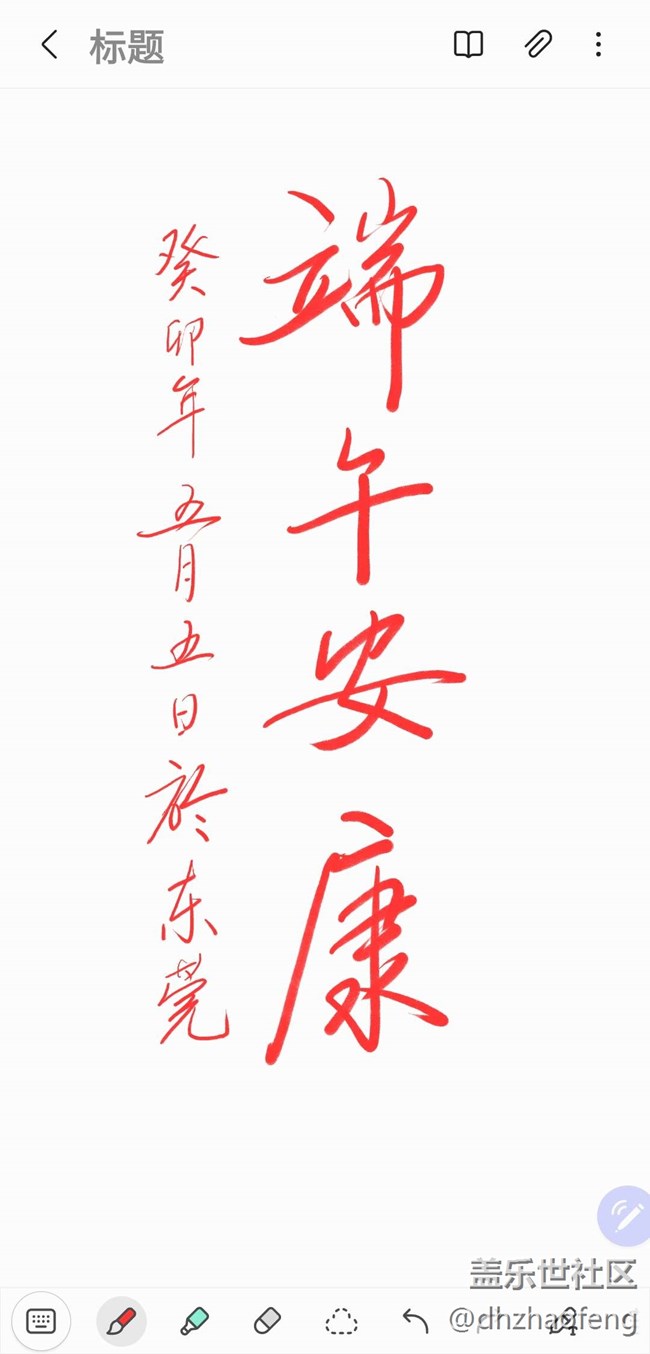 标题
端午安康
癸卯年五月五日於东莞
盖乐世社区
@dhzhaofeng